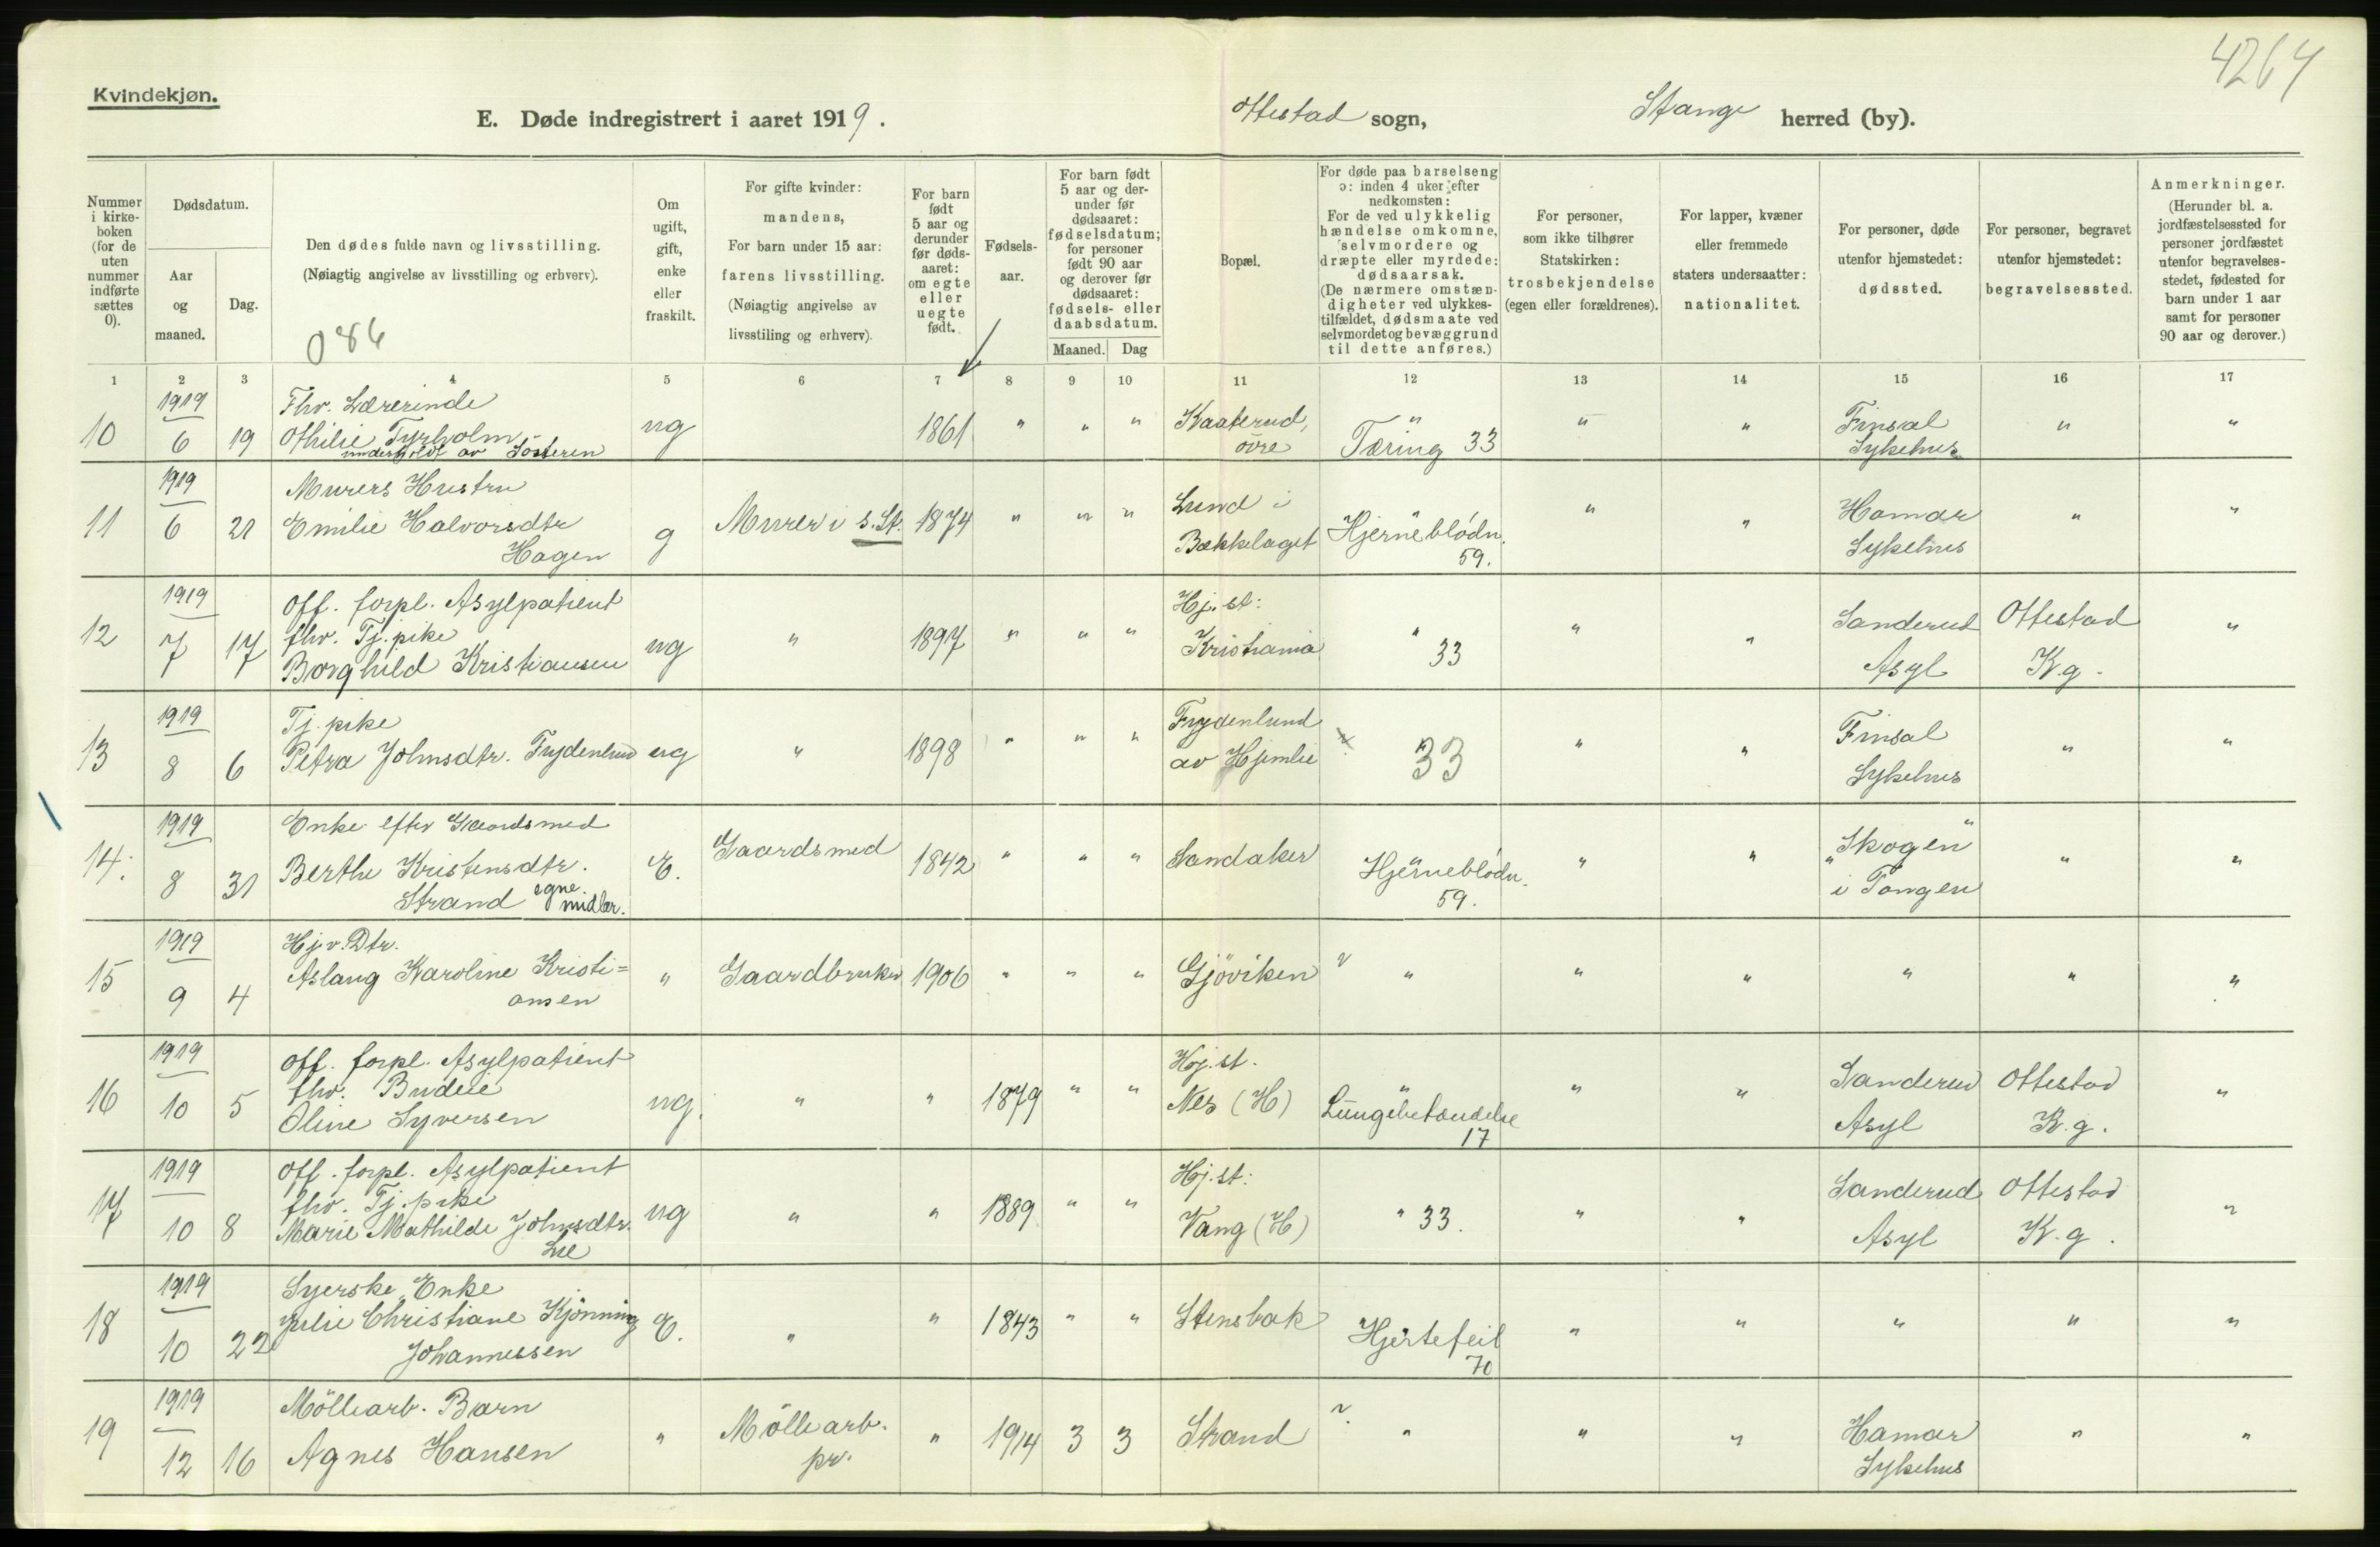 4264
Kvindekjøn.
E. Døde indregistrert i aaret 1919. Ottestad sogn, Stange herred (by).
Nummer i kirke- boken (for de uten nummer indførte sættes 0).
Dødsdatum.
Aar og maaned.
Dag.
Den dødes fulde navn og livsstilling.
(Nøiagtig angivelse av livsstilling og erhverv).
086
Om ugift, gift, enke eller fraskilt.
For gifte kvinder:
mandens,
For barn under 15 aar:
farens livsstilling.
(Nøiagtig angivelse av
livsstiling og erhverv).
For barn født 5 aar og derunder før døds- aaret: om egte eller uegte født.
Fødsels- aar.
For barn født 5 aar og der- under før dødsaaret: fødselsdatum; for personer født 90 aar og derover før dødsaaret: fødsels- eller daabsdatum.
Maaned. Dag
Bopæl.
For døde paa barselseng
ɔ: inden 4 uker efter
nedkomsten:
For de ved ulykkelig
hændelse omkomne,
selvmordere og
dræpte eller myrdede:
dødsaarsak.
(De nærmere omstæn-
digheter ved ulykkes-
tilfældet, dødsmaate ved
selvmordet og bevæggrund
til dette anføres.)
For personer,
som ikke tilhører
Statskirken:
trosbekjendelse
(egen eller forældrenes).
For lapper, kvæner
eller fremmede
staters undersaatter:
nationalitet.
For personer, døde
utenfor hjemstedet:
dødssted.
For personer, begravet
utenfor hjemstedet:
begravelsessted.
Anmerkninger.
(Herunder bl. a.
jordfæstelsessted for
personer jordfæstet
utenfor begravelses-
stedet, fødested for
barn under 1 aar
samt for personer
90 aar og derover.)
1 2 3 4 5 6 7 8 9 10 11 12 13 14 15 16 17
10 1919 6 19 Fhv. Lærerinde
Othilie Tyrholm
underholdt av Søsteren ug 1861 " " " Kaaterud, øvre " Tæring 33 " " Finsal Sykehus " "
11 1919 6 21 Murers Hustru
Emilie Halvorsdtr
Hagen g Murer i s. St. 1874 " " " Lund i Bækkelaget " Hjerneblødn. 59. " " Hamar Sykehus " "
12 1919 7 17 Off. forpl. Asylpatient
fhv. Tj. pike
Borghild Kristiansen ug " 1897 " " " Hj. st: Kristiania " 33 " " Sanderud Asyl Ottestad K.g. "
13 1919 8 6 Tj. pike
Petra Johnsdtr. Frydenlund ug " 1898 " " " Frydenlund av Hjemlie 33 " " Finsal Sykehus " "
14. 1919 8 31 Enke efter Gaardsmed
Berthe Kristensdtr.
Strand egne midler. E. Gaardsmed 1842 " " " Sandaker " Hjerneblødn. 59. " " "Skogen" i Tangen " "
15 1919 9 4 Hj. v. Dtr.
Aslaug Karoline Kristi=
ansen " Gaardbruker 1906 " " " Gjöviken " " " " " "
16 1919 10 5 Off. forpl. Asylpatient
fhv. Budeie
Oline Syversen ug. " " 1879 " " Hj. st. Nes (H) " Lungebetændelse 17 " " Sanderud Asyl Ottestad K.g. "
17 1919 10 8 Off. forpl. Asylpatient
fhv. Tj. pike
Marie Mathilde Johnsdtr.
Lie ug " " 1889 " " Hj. st: Vang (H) " 33. " " Sanderud Asyl Ottestad K.g. "
18 1919 10 22 Syerske, Enke
Julie Christiane Kjönning
Johannessen E. " " 1843 " " Stensbak Hjertefeil 70 " " " " "
19 1919 12 16 Möllearb. Barn
Agnes Hansen " Möllearb. pr. " 1914 3 3 Strand " " " Hamar Sykehus " "